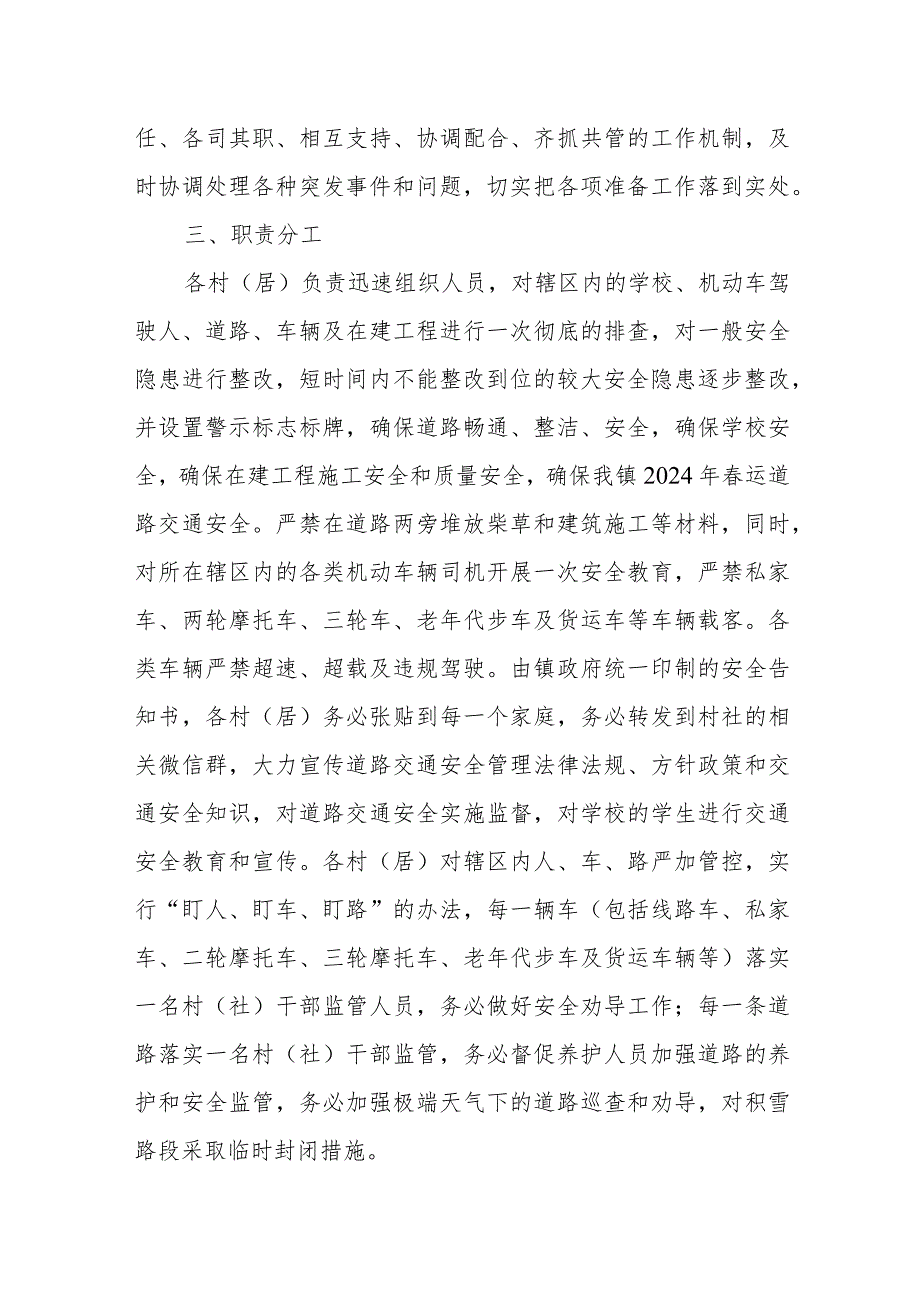 任、各司其职、相互支持、协调配合、齐抓共管的工作机制，及
时协调处理各种突发事件和问题，切实把各项准备工作落到实处。
三、职责分工
各村（居）负责迅速组织人员，对辖区内的学校、机动车驾
驶人、道路、车辆及在建工程进行一次彻底的排查，对一般安全
隐患进行整改，短时间内不能整改到位的较大安全隐患逐步整改，
并设置警示标志标牌，确保道路畅通、整洁、安全，确保学校安
全，确保在建工程施工安全和质量安全，确保我镇 2024 年春运道
路交通安全。严禁在道路两旁堆放柴草和建筑施工等材料，同时，
对所在辖区内的各类机动车辆司机开展一次安全教育，严禁私家
车、两轮摩托车、三轮车、老年代步车及货运车等车辆载客。各
类车辆严禁超速、超载及违规驾驶。由镇政府统一印制的安全告
知书，各村（居）务必张贴到每一个家庭，务必转发到村社的相
关微信群，大力宣传道路交通安全管理法律法规、方针政策和交
通安全知识，对道路交通安全实施监督，对学校的学生进行交通
安全教育和宣传。各村（居）对辖区内人、车、路严加管控，实
行“盯人、盯车、盯路”的办法，每一辆车（包括线路车、私家
车、二轮摩托车、三轮摩托车、老年代步车及货运车辆等）落实
一名村（社）干部监管人员，务必做好安全劝导工作；每一条道
路落实一名村（社）干部监管，务必督促养护人员加强道路的养
护和安全监管，务必加强极端天气下的道路巡查和劝导，对积雪
路段采取临时封闭措施。